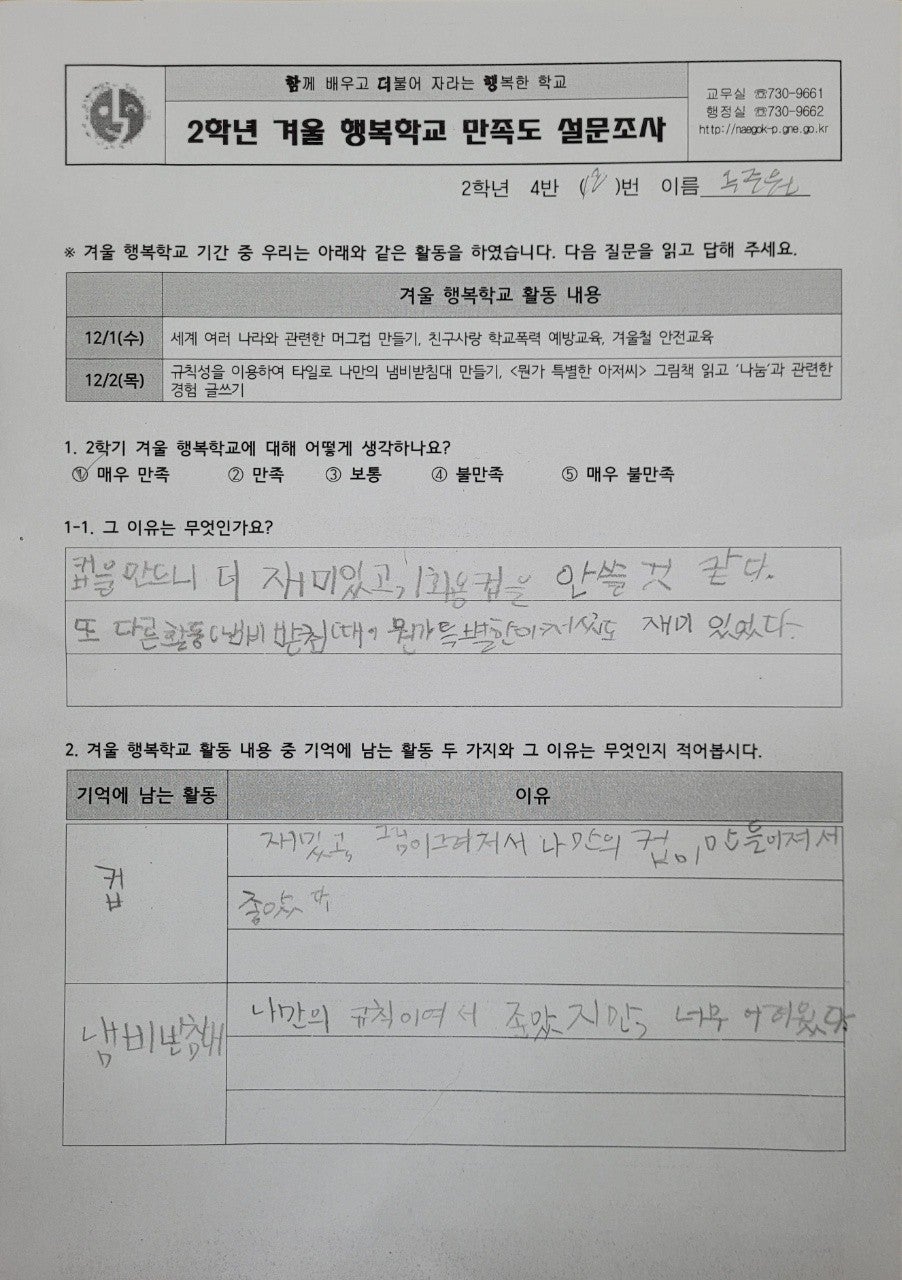 함께 배우고 더불어 자라는 행복한 학교
2학년 겨울 행복학교 만족도 설문조사
교무실 ☏730-9661
행정실 ☏730-9662
http://naegok-p.gne.go.kr
2학년 4반 ( )번 이름
※ 겨울 행복학교 기간 중 우리는 아래와 같은 활동을 하였습니다. 다음 질문을 읽고 답해 주세요.
겨울 행복학교 활동 내용
12/1(수) 세계 여러 나라와 관련한 머그컵 만들기, 친구사랑 학교폭력 예방교육, 겨울철 안전교육
12/2(목) 규칙성을 이용하여 타일로 나만의 냄비받침대 만들기, <뭔가 특별한 아저씨> 그림책 읽고 '나눔'과 관련한
경험 글쓰기
1. 2학기 겨울 행복학교에 대해 어떻게 생각하나요?
① 매우 만족 ② 만족 ③ 보통 ④ 불만족 ⑤ 매우 불만족
1-1. 그 이유는 무엇인가요?
컵을 만드니 더 재미있고, 1회용컵을 안쓸 것 같다.
또 다른 활동(냄비 받침대, 뭔가 특별한아저씨)도 재미 있었다.
2. 겨울 행복학교 활동 내용 중 기억에 남는 활동 두 가지와 그 이유는 무엇인지 적어봅시다.
기억에 남는 활동 이유
컵 재밌고, 그림이그려져서 나만의 컵이 만들어져서
좋았다
냄비받침대 나만의 규칙이여서 좋았지만, 너무 어려웠다.